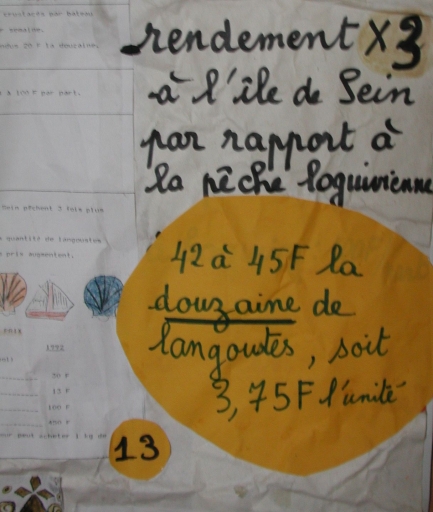 crustacés par bateau
semaine.
29 F la douzaine.
à 100 F par part.
Sein pêchent 3 fois plus
quantité de langoustes
prix augmentent.
1992
50 F
15 F
100 F
450 F
peut acheter 1 kg de
rendement X3
à l'île de Sein
par rapport à
la pêche loguivienne
42 à 45F la
douzaine de
langoustes, soit
3,75F l'unité
13